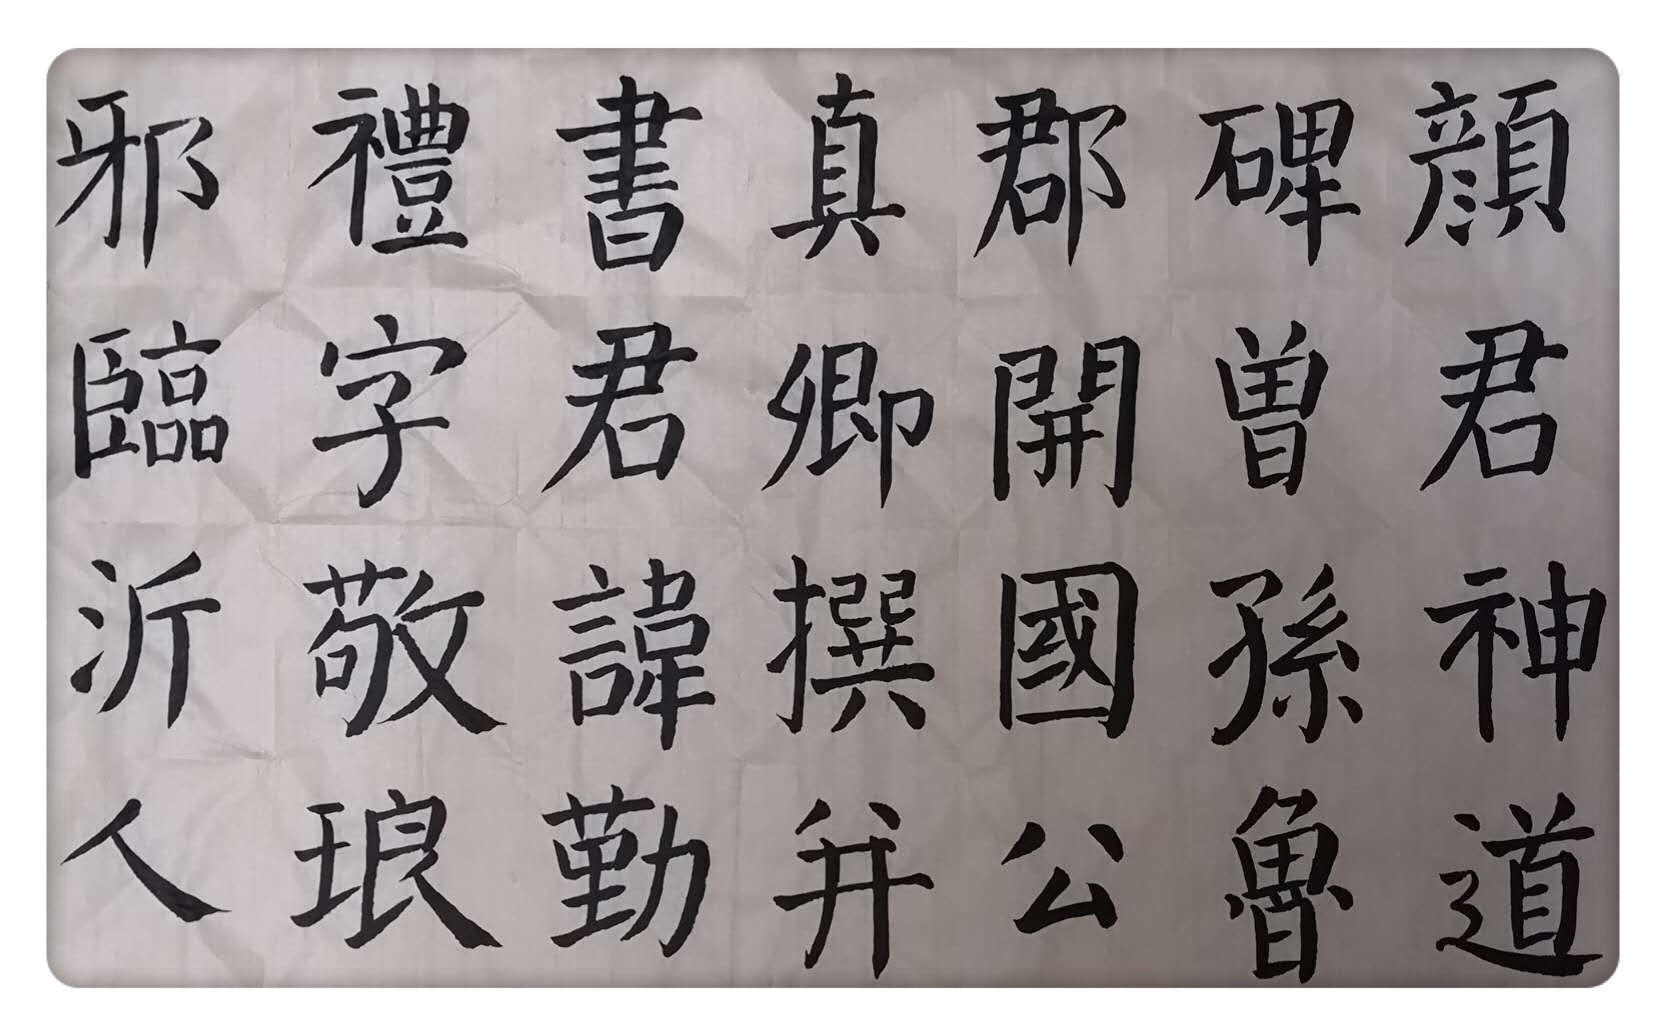 顔君神道
碑曽孫魯
郡開國公
真卿撰并
書君諱勤
禮字敬琅
邪臨沂人